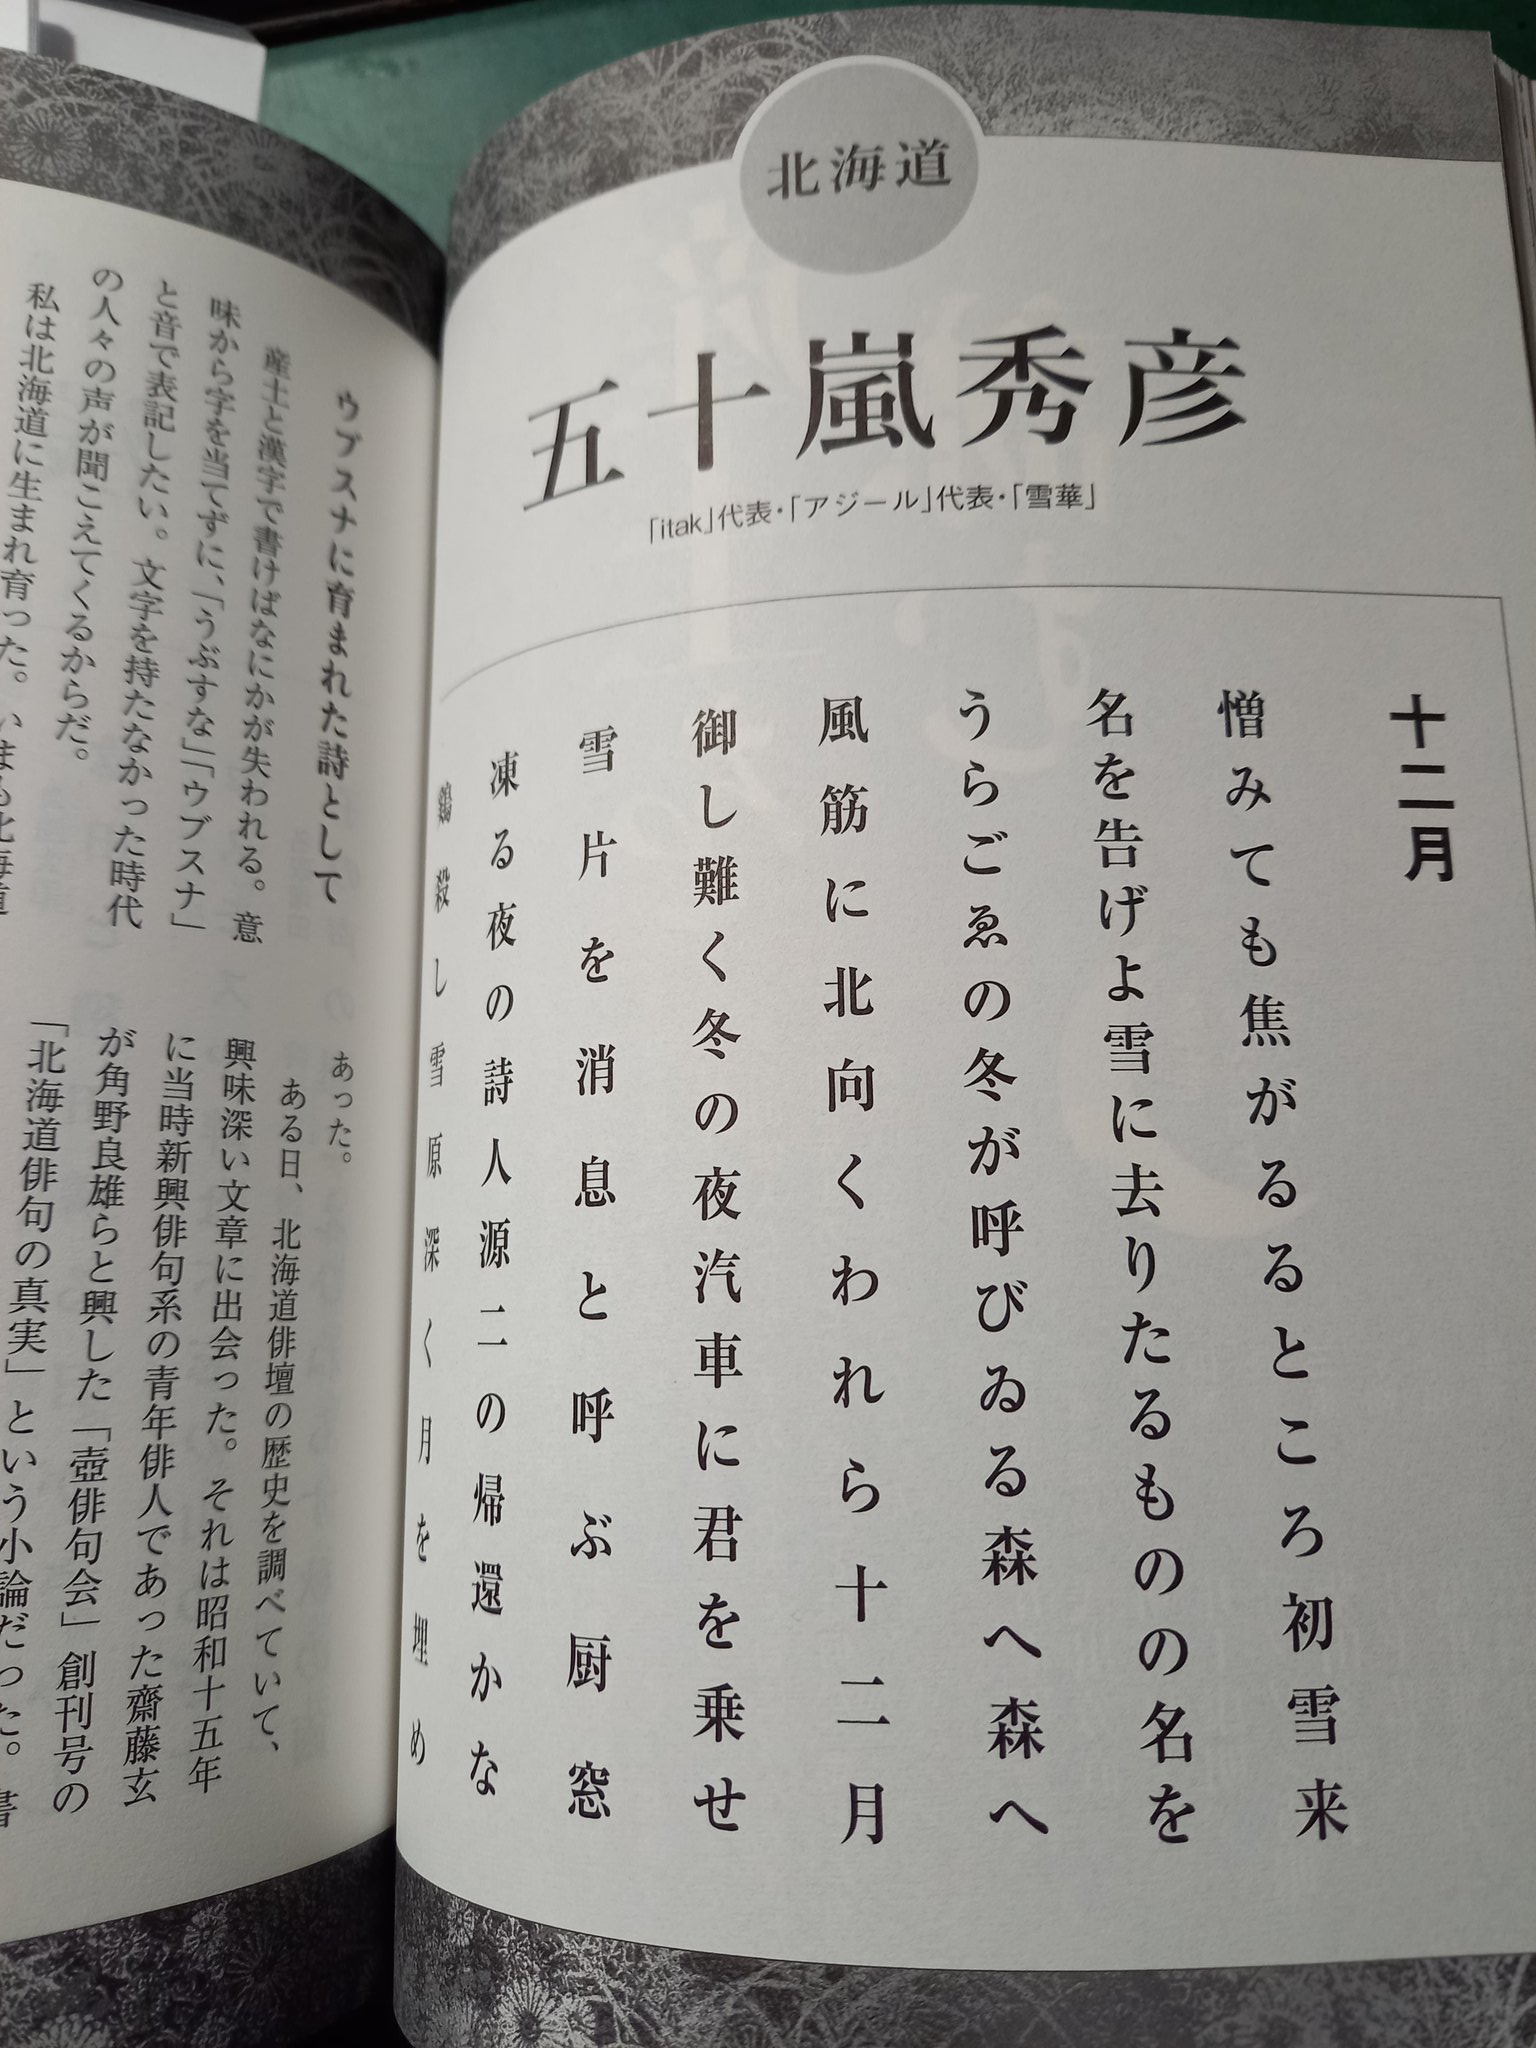 北海道
五十嵐秀彦
「itak」代表・「アジール」代表・「雪華」
十二月
憎みても焦がるるところ初雪来
名を告げよ雪に去りたるものの名を
うらごゑの冬が呼びゐる森へ森へ
風筋に北向くわれら十二月
御し難く冬の夜汽車に君を乗せ
雪片を消息と呼ぶ厨窓
凍る夜の詩人源二の帰還かな
鶏殺し雪原深く月を埋め
ウブスナに育まれた詩として
産土と漢字で書けばなにかが失われる。意
味から字を当てずに、「うぶすな」「ウブスナ」
と音で表記したい。文字を持たなかった時代
の人々の声が聞こえてくるからだ。
私は北海道に生まれ育った。いまも北海道
あった。
ある日、北海道俳壇の歴史を調べていて、
興味深い文章に出会った。それは昭和十五年
に当時新興俳句系の青年俳人であった齋藤玄
が角野良雄らと興した「壺俳句会」創刊号の
「北海道俳句の真実」という小論だった。書